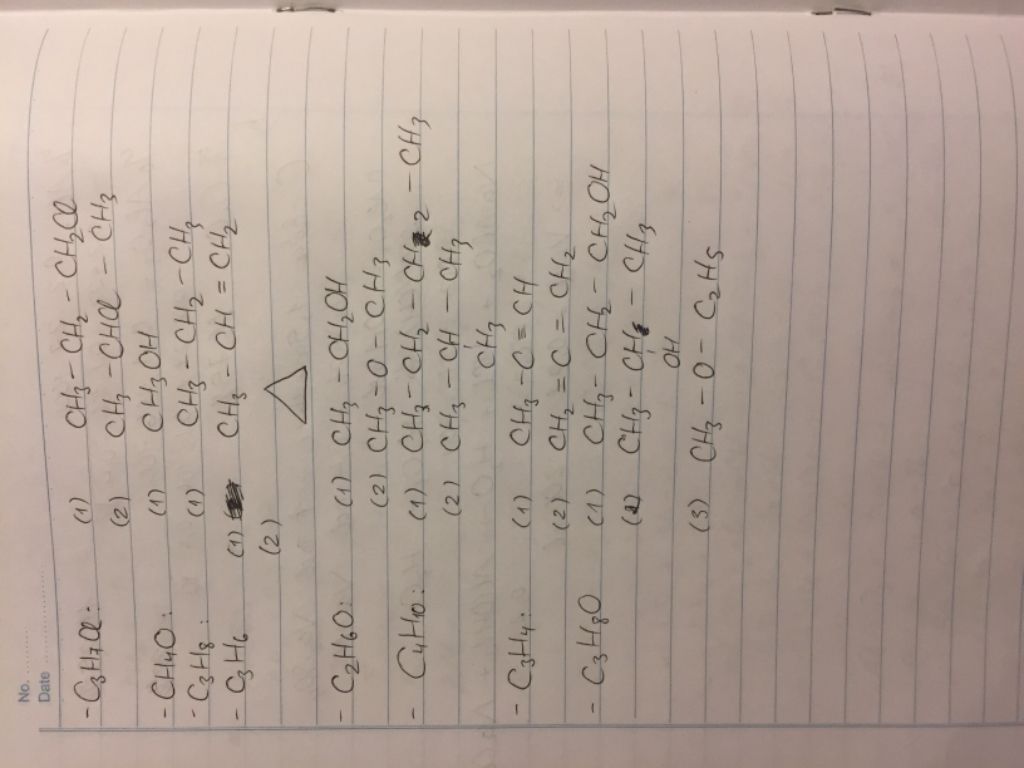 No.
Date
- C₃H₇Cl: (1) CH₃ - CH₂ - CH₂Cl
(2) CH₃ - CHCl - CH₃
- CH₄O: (1) CH₃OH
- C₃H₈: (1) CH₃ - CH₂ - CH₃
- C₃H₆ (1) CH₃ - CH = CH₂
(2)
- C₂H₆O: (1) CH₃ - CH₂OH
(2) CH₃ - O - CH₃
- C₄H₁₀: (1) CH₃ - CH₂ - CH₂ - CH₃
(2) CH₃ - CH - CH₃
CH₃
- C₃H₄: (1) CH₃ - C ≡ CH
(2) CH₂ = C = CH₂
- C₃H₈O (1) CH₃ - CH₂ - CH₂OH
(2) CH₃ - CH - CH₃
OH
(3) CH₃ - O - C₂H₅